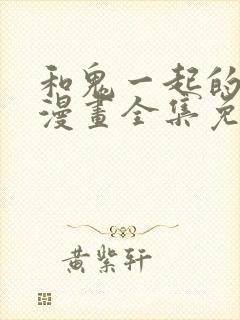 和鬼一起的
漫畫全集免
黄紫轩